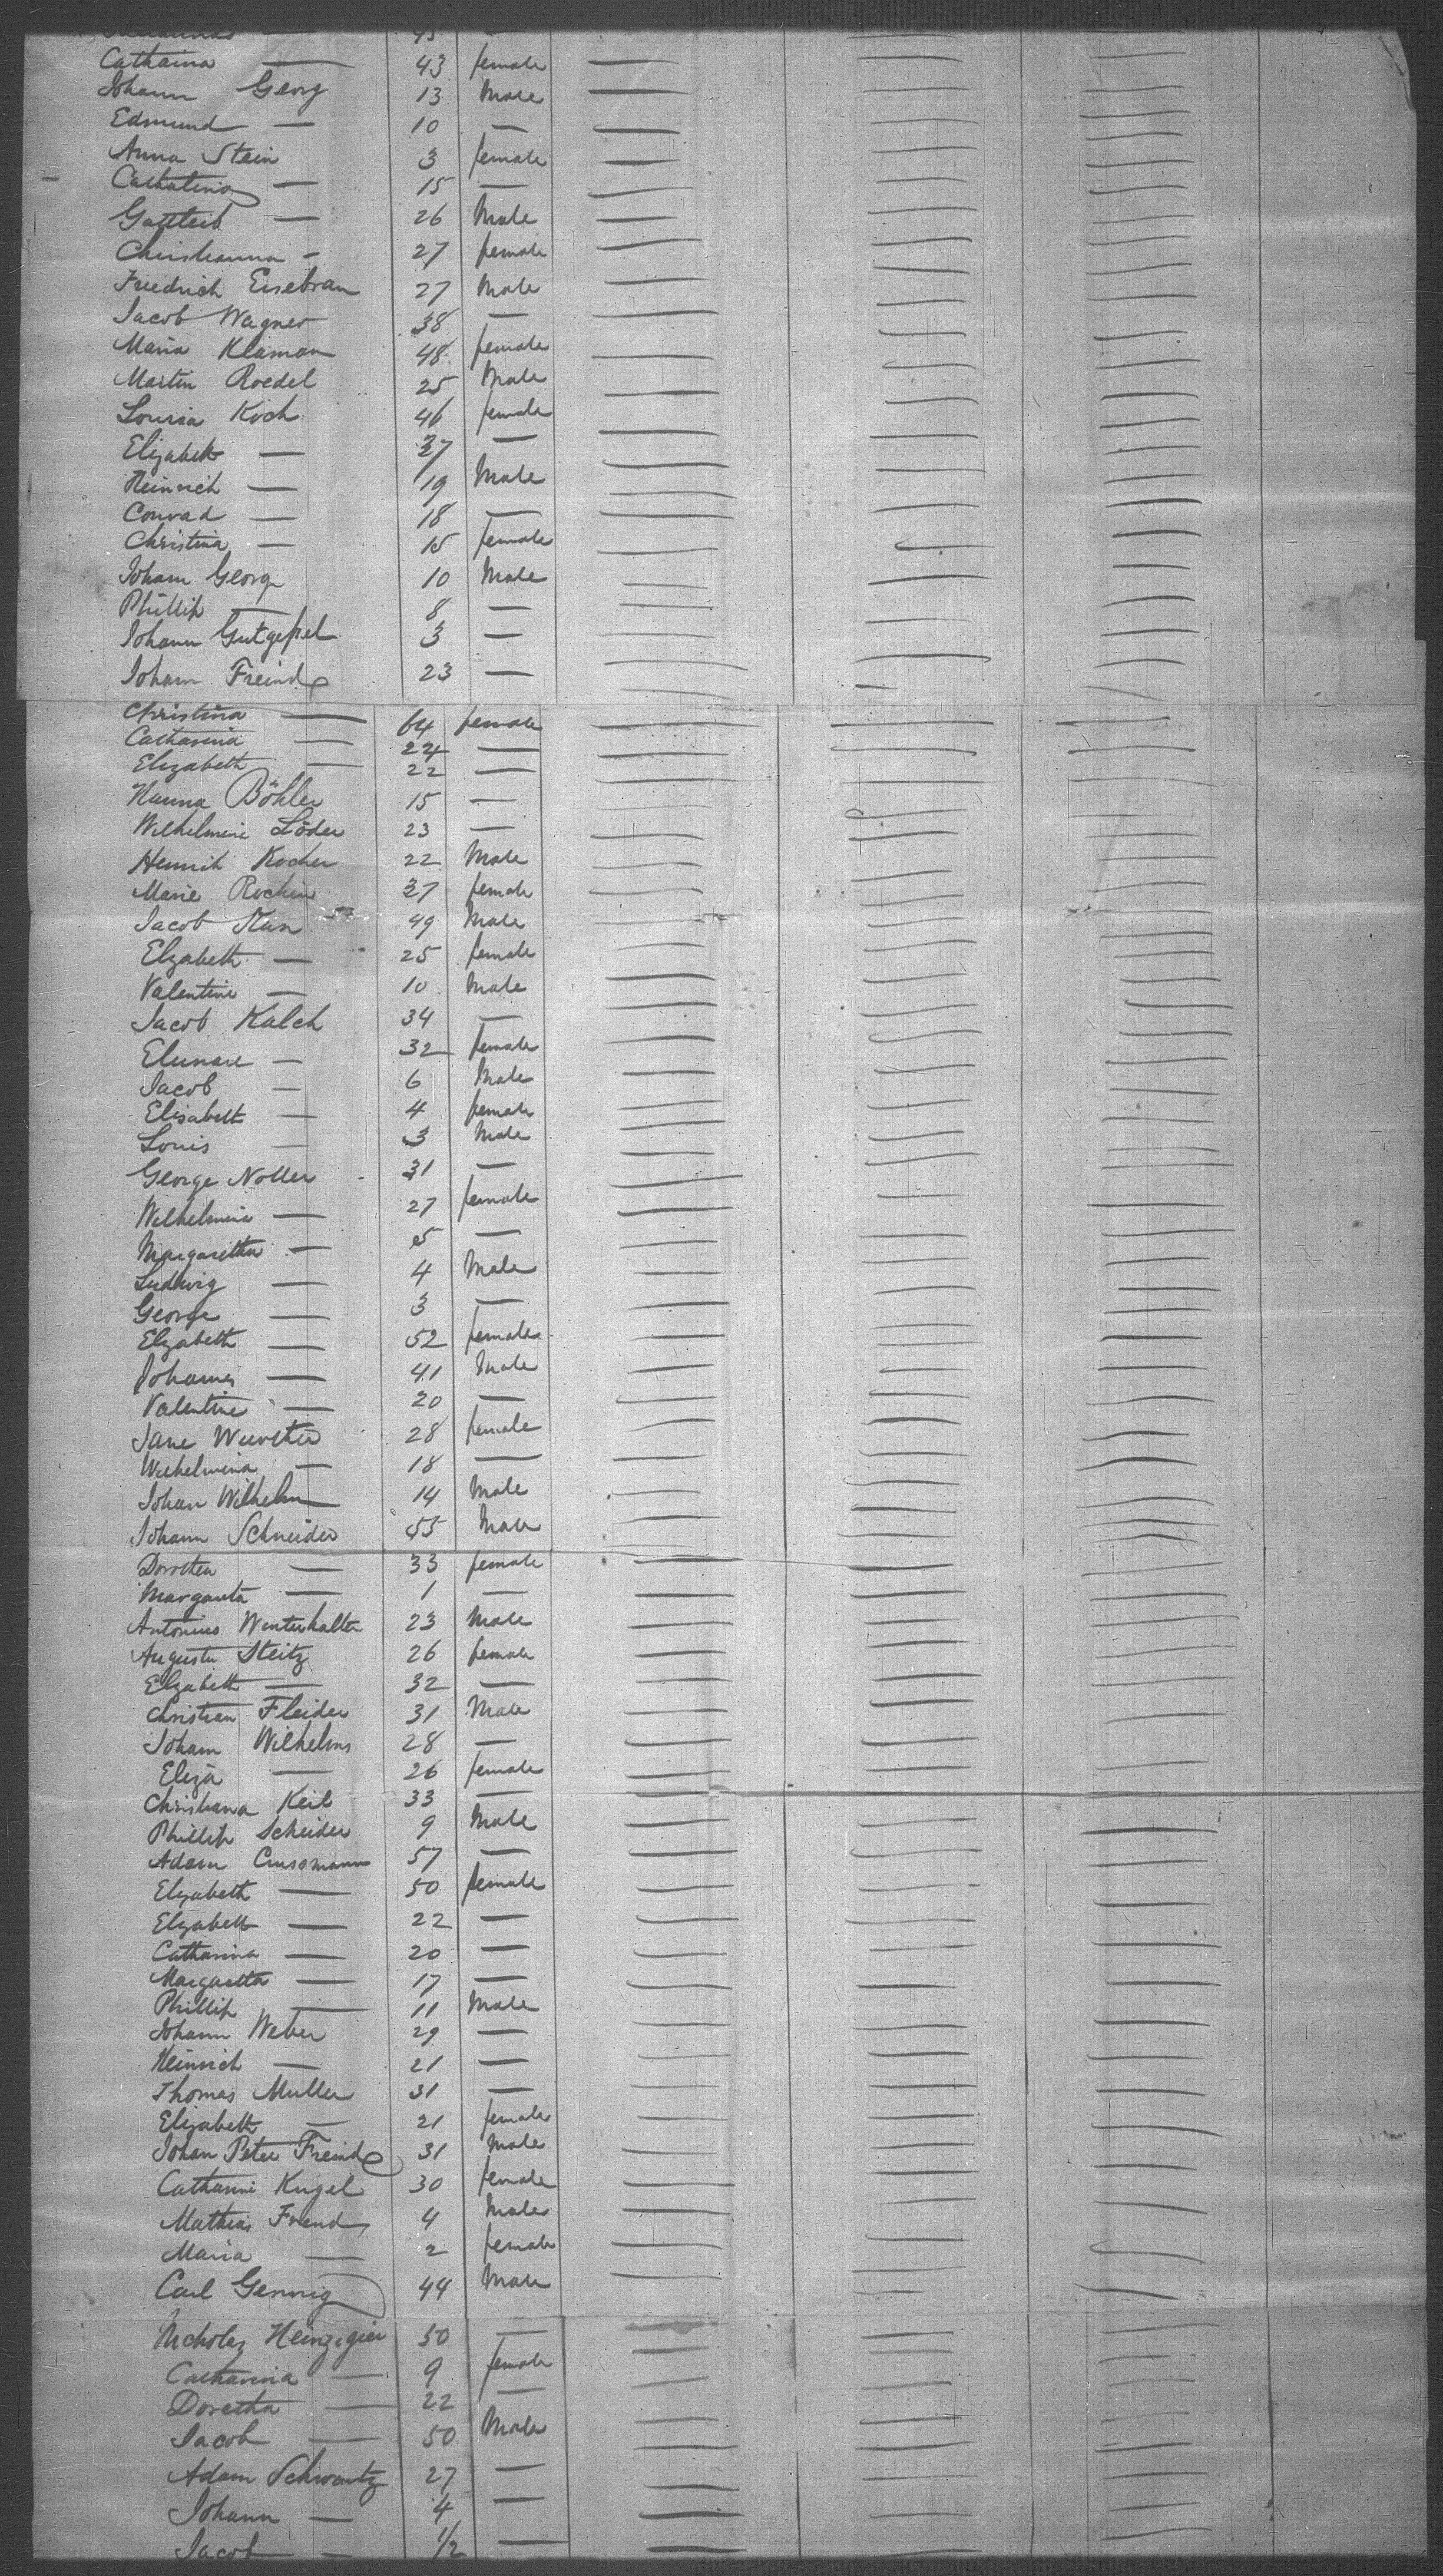 45 —
Catharina — 43 female — — —
Johann Georg 13 Male — — —
Edmund — 10 — — — —
Anna Stein 3 female — — —
Catharina — 15 — — — —
Gottleib — 26 Male — — —
Christianna — 27 female — — —
Friedrich Eisebran 27 Male — — —
Jacob Wagner 38 — — — —
Maria Klaman 48 female — — —
Martin Roedel 25 Male — — —
Louisa Koch 46 female — — —
Elizabeth — 37 — — — —
Heinrich — 19 Male — — —
Conrad — 18 — — — —
Christina — 15 female — — —
Joham George 10 Male — — —
Phillip — 8 — — — —
Johann Gutgesel 3 — — — —
Joham Freind 23 — — — —
Christina — 64 female — — —
Catharina — 24 — — — —
Elizabeth — 22 — — — —
Hanna Böhler 15 — — — —
Wilhelmine Löder 23 — — — —
Henrich Kocher 22 Male — — —
Marie Rochin 37 female — — —
Jacob 49 Male — — —
Elizabeth — 25 female — — —
Valentine — 10 Male — — —
Jacob Kalch 34 — — — —
Elenare — 32 female — — —
Jacob — 6 Male — — —
Elisabeth — 4 female — — —
Louis — 3 Male — — —
George Noller 31 — — — —
Wilhelmine — 27 female — — —
Margaretha — 5 — — — —
Ludwig — 4 Male — — —
George — 3 — — — —
Elizabeth — 52 female — — —
Johannes — 41 Male — — —
Valentine — 20 — — — —
Jane Wurster 28 female — — —
Wilhelmina — 18 — — — —
Johan Wilhelm — 14 Male — — —
Johann Schneider 55 Male — — —
Dorothea — 33 female — — —
Margareta — 1 — — — —
Antonius Winterhalter 23 Male — — —
Augusta Steitz 26 female — — —
Elizabeth — 32 — — — —
Christian Fleider 31 Male — — —
Joham Wilhelms 28 — — — —
Eliza — 26 female — — —
Christiana Keil 33 — — — —
Phillip Scheider 9 Male — — —
Adam Crussmann 57 — — — —
Elizabeth — 50 female — — —
Elizabeth — 22 — — — —
Catharina — 20 — — — —
Margaretta — 17 — — — —
Phillip — 11 Male — — —
Johann Weber 29 — — — —
Heinrich — 21 — — — —
Thomas Muller 31 — — — —
Elizabeth — 21 female — — —
Johan Peter Freind 31 Male — — —
Catharine Kugel 30 female — — —
Mathias Freind 4 Male — — —
Maria — 2 female — — —
Carl Gennig 44 Male — — —
Nicholas Heinzigier 50 — — — —
Catharina — 9 female — — —
Doretha — 22 — — — —
Jacob — 50 Male — — —
Adam Schwartz 27 — — — —
Johann — 4 — — — —
Jacob — 1/2 — — — —